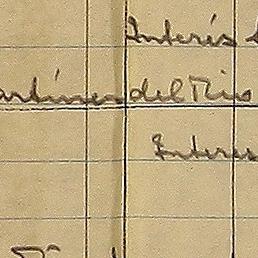 Interés
artinez del Rio
Interes